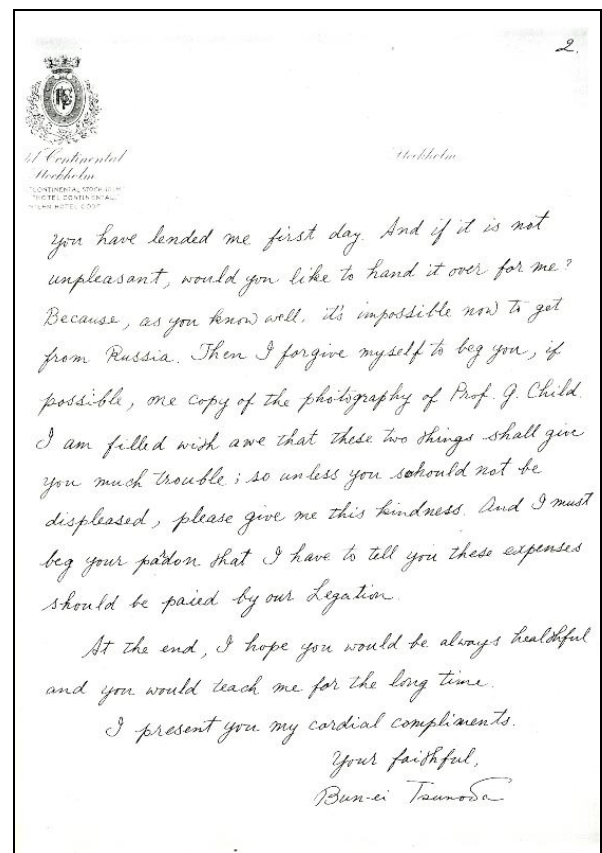 2.
Continental
Stockholm
Stockholm
"CONTINENTAL STOCKHOLM"
"HOTEL CONTINENTAL"
you have lended me first day. And if it is not
unpleasant, would you like to hand it over for me?
Because, as you know well, it's impossible now to get
from Russia. Then I forgive myself to beg you, if
possible, one copy of the photography of Prof. G. Child.
I am filled wish awe that these two things shall give
you much trouble; so unless you should not be
displeased, please give me this kindness. And I must
beg your pardon that I have to tell you these expenses
should be paied by our Legation.
At the end, I hope you would be always healthful
and you would teach me for the long time.
I present you my cordial compliments.
Your faithful,
Bun-ei Tsunoda